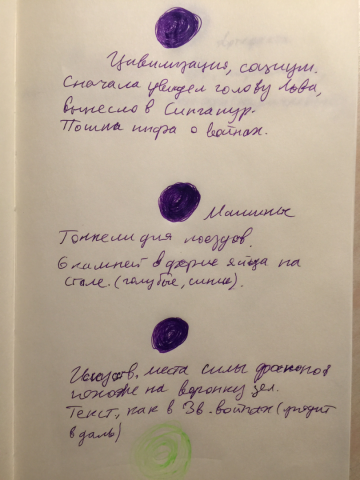 Цивилизация, социум.
Сначала увидел голову льва,
вынесло в Сингапур.
Пошла инфа о войнах.
Машины
Тоннели для поездов.
6 камней в форме яйца на
столе. (голубые, синие).
места силы драконов
похоже на воронку зел.
Текст, как в Зв. войнах (уходит
в даль)